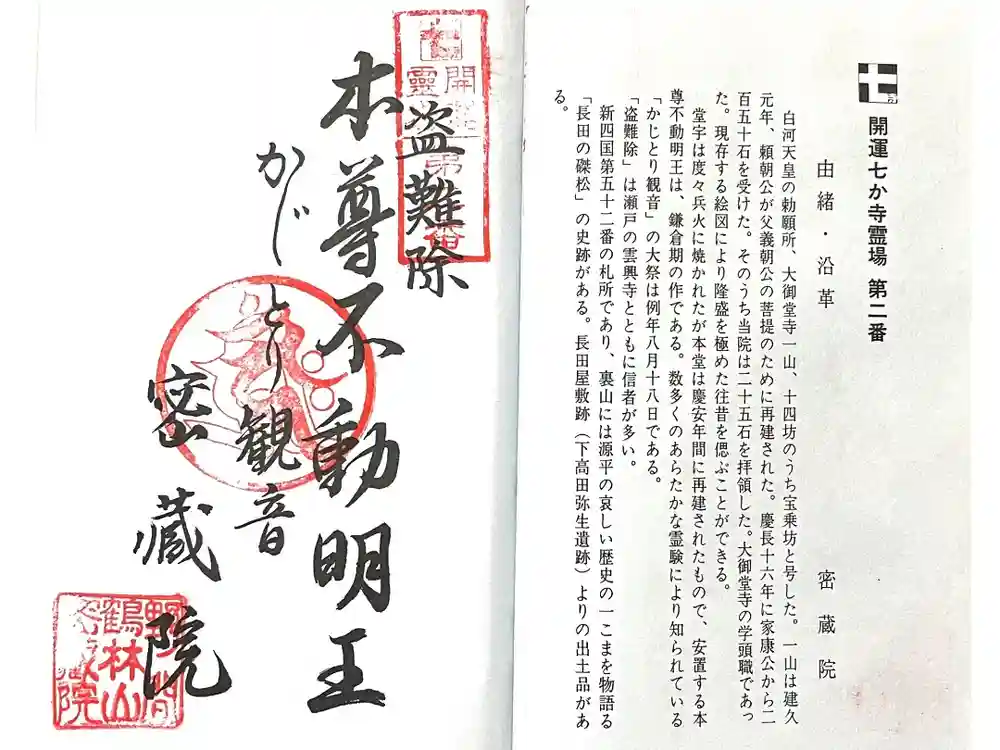 七
開運七か寺霊場 第二番
由緒・沿革 密蔵院
白河天皇の勅願所、大御堂寺一山、十四坊のうち宝乗坊と号した。一山は建久
元年、頼朝公が父義朝公の菩提のために再建された。慶長十六年に家康公から二
百五十石を受けた。そのうち当院は二十五石を拝領した。大御堂寺の学頭職であっ
た。現存する絵図により隆盛を極めた往昔を偲ぶことができる。
堂宇は度々兵火に焼かれたが本堂は慶安年間に再建されたもので、安置する本
尊不動明王は、鎌倉期の作である。数多くのあらたかな霊験により知られている
「かじとり観音」の大祭は例年八月十八日である。
「盗難除」は瀬戸の雲興寺とともに信者が多い。
新四国第五十二番の札所であり、裏山には源平の哀しい歴史の一こまを物語る
「長田の磔松」の史跡がある。長田屋敷跡（下高田弥生遺跡）よりの出土品があ
る。
盗難除
本尊不動明王
かじとり観音
密蔵院
野間
鶴林山
密蔵院